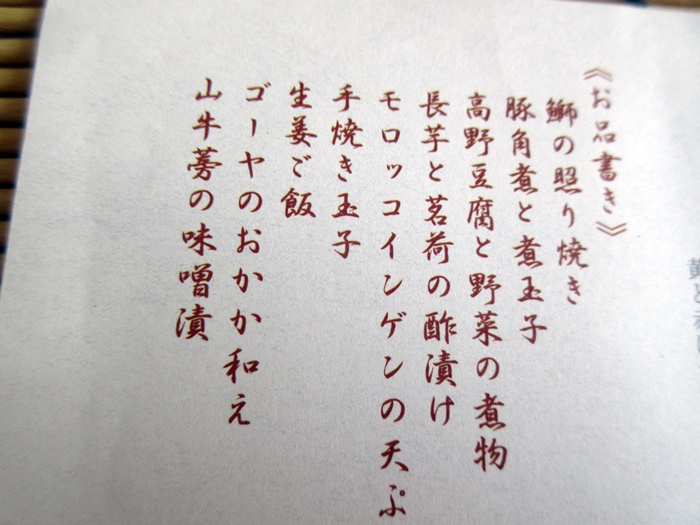 《お品書き》
鰤の照り焼き
豚角煮と煮玉子
高野豆腐と野菜の煮物
長芋と茗荷の酢漬け
モロッコインゲンの天ぷ
手焼き玉子
生姜ご飯
ゴーヤのおかか和え
山牛蒡の味噌漬